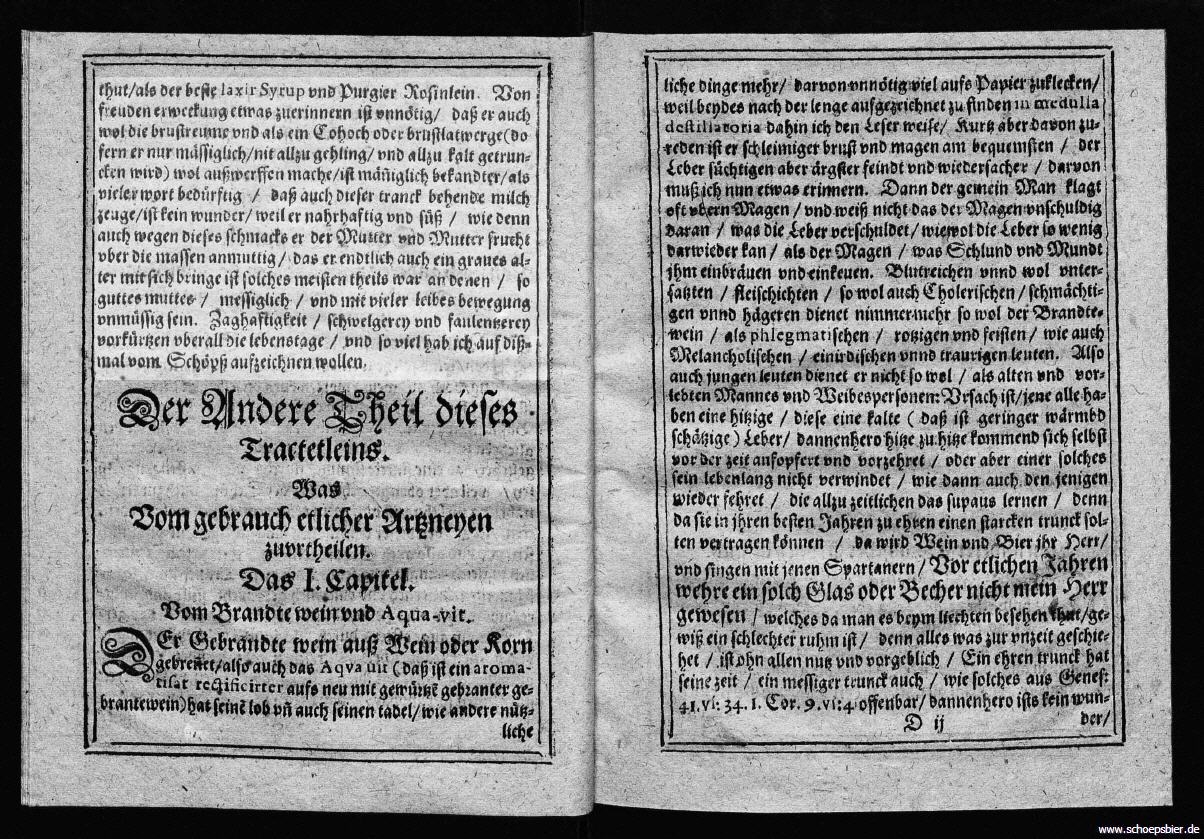 thut/als der beste laxir Syrup vnd Purgier Rosinlein. Von
freuden erweckung etwas zuerinnern ist vnnötig/ daß er auch
wol die brustreume vnd als ein Lohoch oder brustlatwerge (do
fern er nur mässiglich/nit allzu gehling/ vnd allzu kalt getrun-
cken wird) wol außwerffen mache/ist mäñiglich bekandter/als
vieler wort bedürftig / daß auch dieser tranck behende milch
zeuge/ist kein wunder/ weil er nahrhafftig vnd süß / wie denn
auch wegen dieses schmacks er der Mutter vnd Mutter frucht
vber die massen anmuttig/ das er endtlich auch ein graues al-
ter mit sich bringe ist solches meisten theils war an denen / so
guttes muttes / messiglich / vnd mit vieler leibes bewegung
vnmüssig sein. Zaghafftigkeit / schwelgerey vnd faulentzerey
vorkürtzen vberall die lebenstage / vnd so viel hab ich auf diß-
mal vom Schöpß aufzeichnen wollen.
Der Andere Theil dieses
Tractetleins.
Was
Vom gebrauch etlicher Artzneyen
zuvrtheilen.
Das I. Capitel.
Vom Brandte wein vnd Aqua-vit.
DEr Gebrandte wein auß Wein oder Korn
gebreñet/also auch das Aqva vit (daß ist ein aroma-
tisat rectificirter aufs neu mit gewürtzẽ gebranter ge-
brantewein) hat seinẽ lob vñ auch seinen tadel/ wie andere nütz-
liche
liche dinge mehr/ darvon vnnötig viel aufs Papier zuklecken/
weil beydes nach der lenge aufgezeichnet zu finden in medulla
destillatoria dahin ich den Leser weise/ Kurtz aber davon zu-
reden ist er schleimiger brust vnd magen am bequemsten / der
Leber süchtigen aber ärgster feindt vnd wiedersacher / darvon
muß ich nun etwas erinnern. Dann der gemein Man klagt
oft vbern Magen / vnd weiß nicht das der Magen vnschuldig
daran / was die Leber verschuldet/ wiewol die Leber so wenig
darwieder kan / als der Magen / was Schlund vnd Mundt
jhm einbräuen vnd einkeuen. Blutreichen vnnd wol vnter-
satzten / fleischichten / so wol auch Cholerischen/ schmächti-
gen vnnd hägeren dienet nimmermehr so wol der Brandte-
wein / als phlegmatischen / rotzigen vnd feisten / wie auch
Melancholischen / einirdischen vnnd traurigen leuten. Also
auch jungen leuten dienet er nicht so wol / als alten vnd vor-
lebten Mannes vnd Weibespersonen: Vrsach ist/ jene alle ha-
ben eine hitzige / diese eine kalte ( daß ist geringer wärmbd
schätzige ) Leber/ dannenhero hitze zu hitze kommend sich selbst
vor der zeit anfopfert vnd vorzehret / oder aber einer solches
sein lebenlang nicht verwindet / wie dann auch den jenigen
wieder fehret / die allzu zeitlichen das supaus lernen / denn
da sie in jhren besten Jahren zu ehren einen starcken trunck sol-
ten vertragen können / da wird Wein vnd Bier jhr Herr/
vnd singen mit jenen Spartanern / Vor etlichen Jahren
wehre ein solch Glas oder Becher nicht mein Herr
gewesen / welches da man es beym liechten besehen thut/ge-
wiß ein schlechter ruhm ist / denn alles was zur vnzeit geschie-
het / ist ohn allen nutz vnd vorgeblich / Ein ehren trunck hat
seine zeit / ein messiger trunck auch / wie solches aus Genes:
41. vf: 34. 1. Cor. 9. vf: 4 offenbar/ dannenhero ists kein wun-
D ij
der/
www.schoepsbier.de